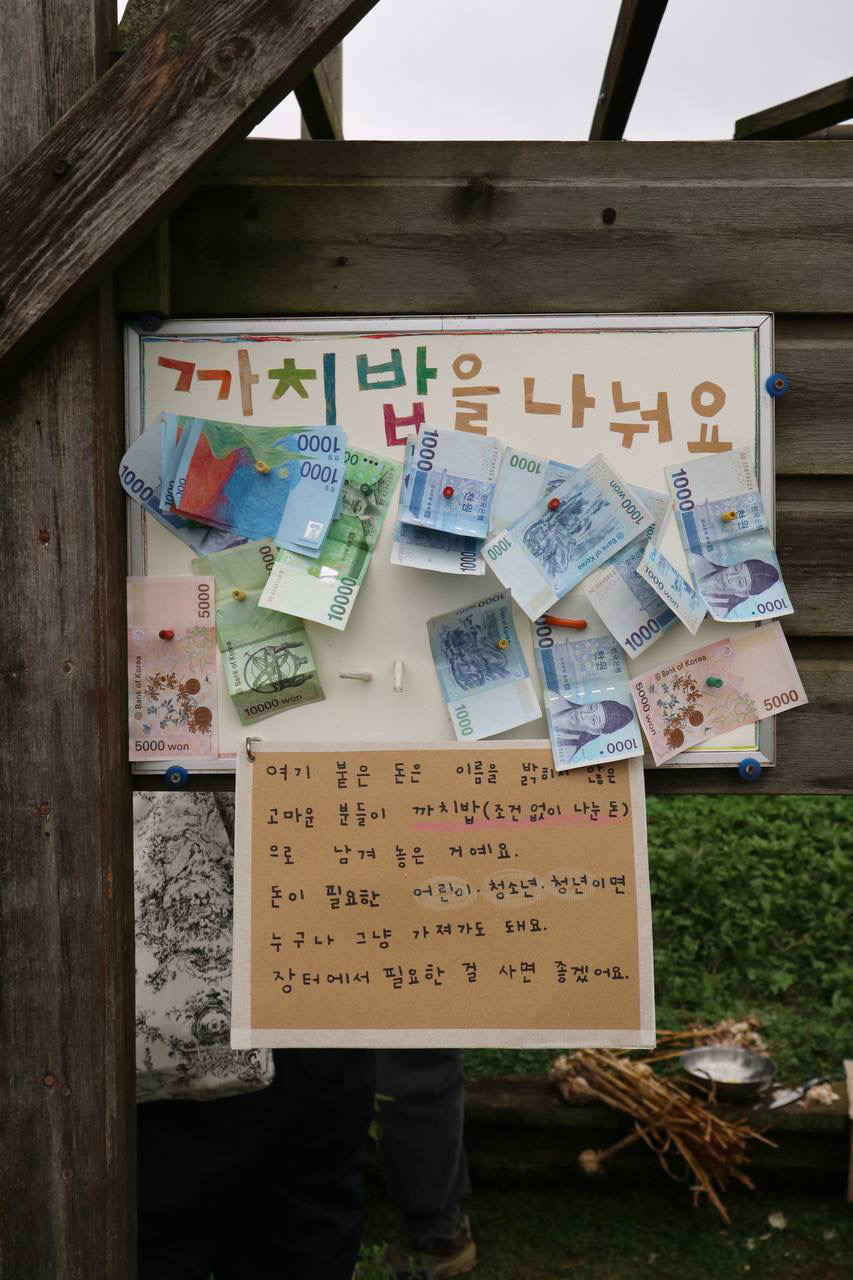 까치밥을 나눠요
1000
1000
1000
00
10000
1000
천원
한국은행
1000
1000
1000
1000 won
Bank of Korea
1000
1000 won
1000
천원
한국은행
1000
5000
Bank of Korea
5000 won
Bank of Korea
10000 won
1000
1000
천원
한국은행
1000
Bank of Korea
5000 won
5000
여기 붙은 돈은 이름을 밝히지 않은
고마운 분들이 까치밥(조건 없이 나눈 돈)
으로 남겨 놓은 거예요.
돈이 필요한 어린이·청소년·청년이면
누구나 그냥 가져가도 돼요.
장터에서 필요한 걸 사면 좋겠어요.